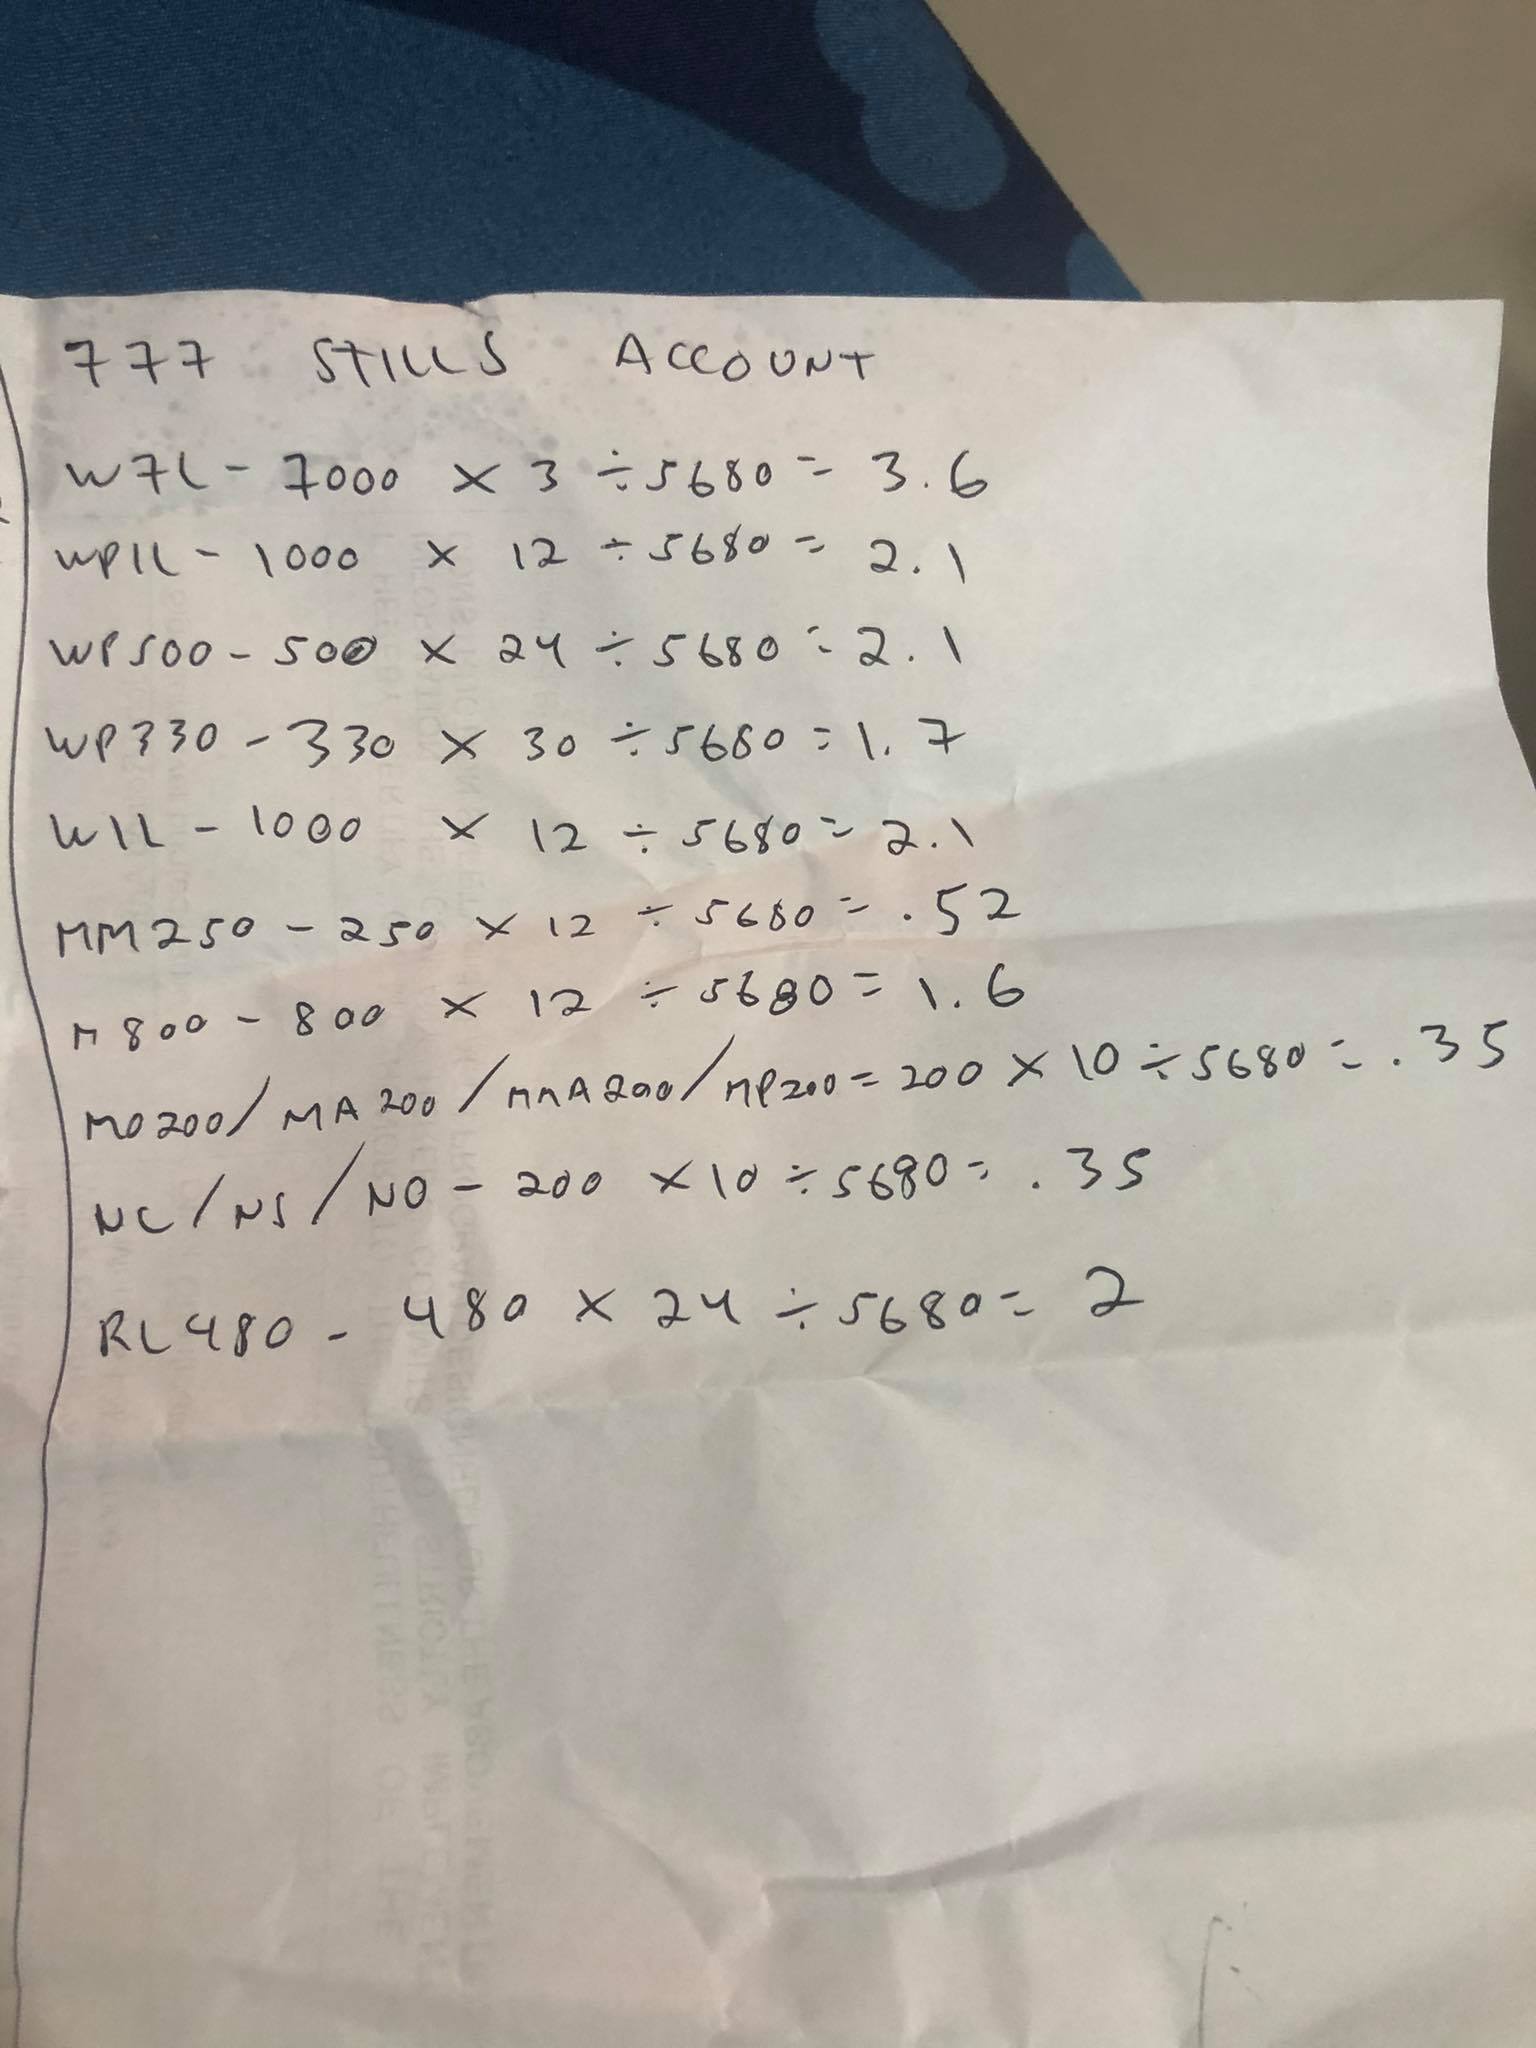 777 STILLS ACCOUNT
W7L - 7000 x 3 ÷ 5680 = 3.6
WP1L - 1000 x 12 ÷ 5680 = 2.1
WP500 - 500 x 24 ÷ 5680 = 2.1
WP330 - 330 x 30 ÷ 5680 = 1.7
W1L - 1000 x 12 ÷ 5680 = 2.1
MM250 - 250 x 12 ÷ 5680 = .52
M800 - 800 x 12 ÷ 5680 = 1.6
MO200/MA200/MMA200/MP200 = 200 x 10 ÷ 5680 = .35
NC/NS/NO - 200 x 10 ÷ 5680 = .35
RL480 - 480 x 24 ÷ 5680 = 2